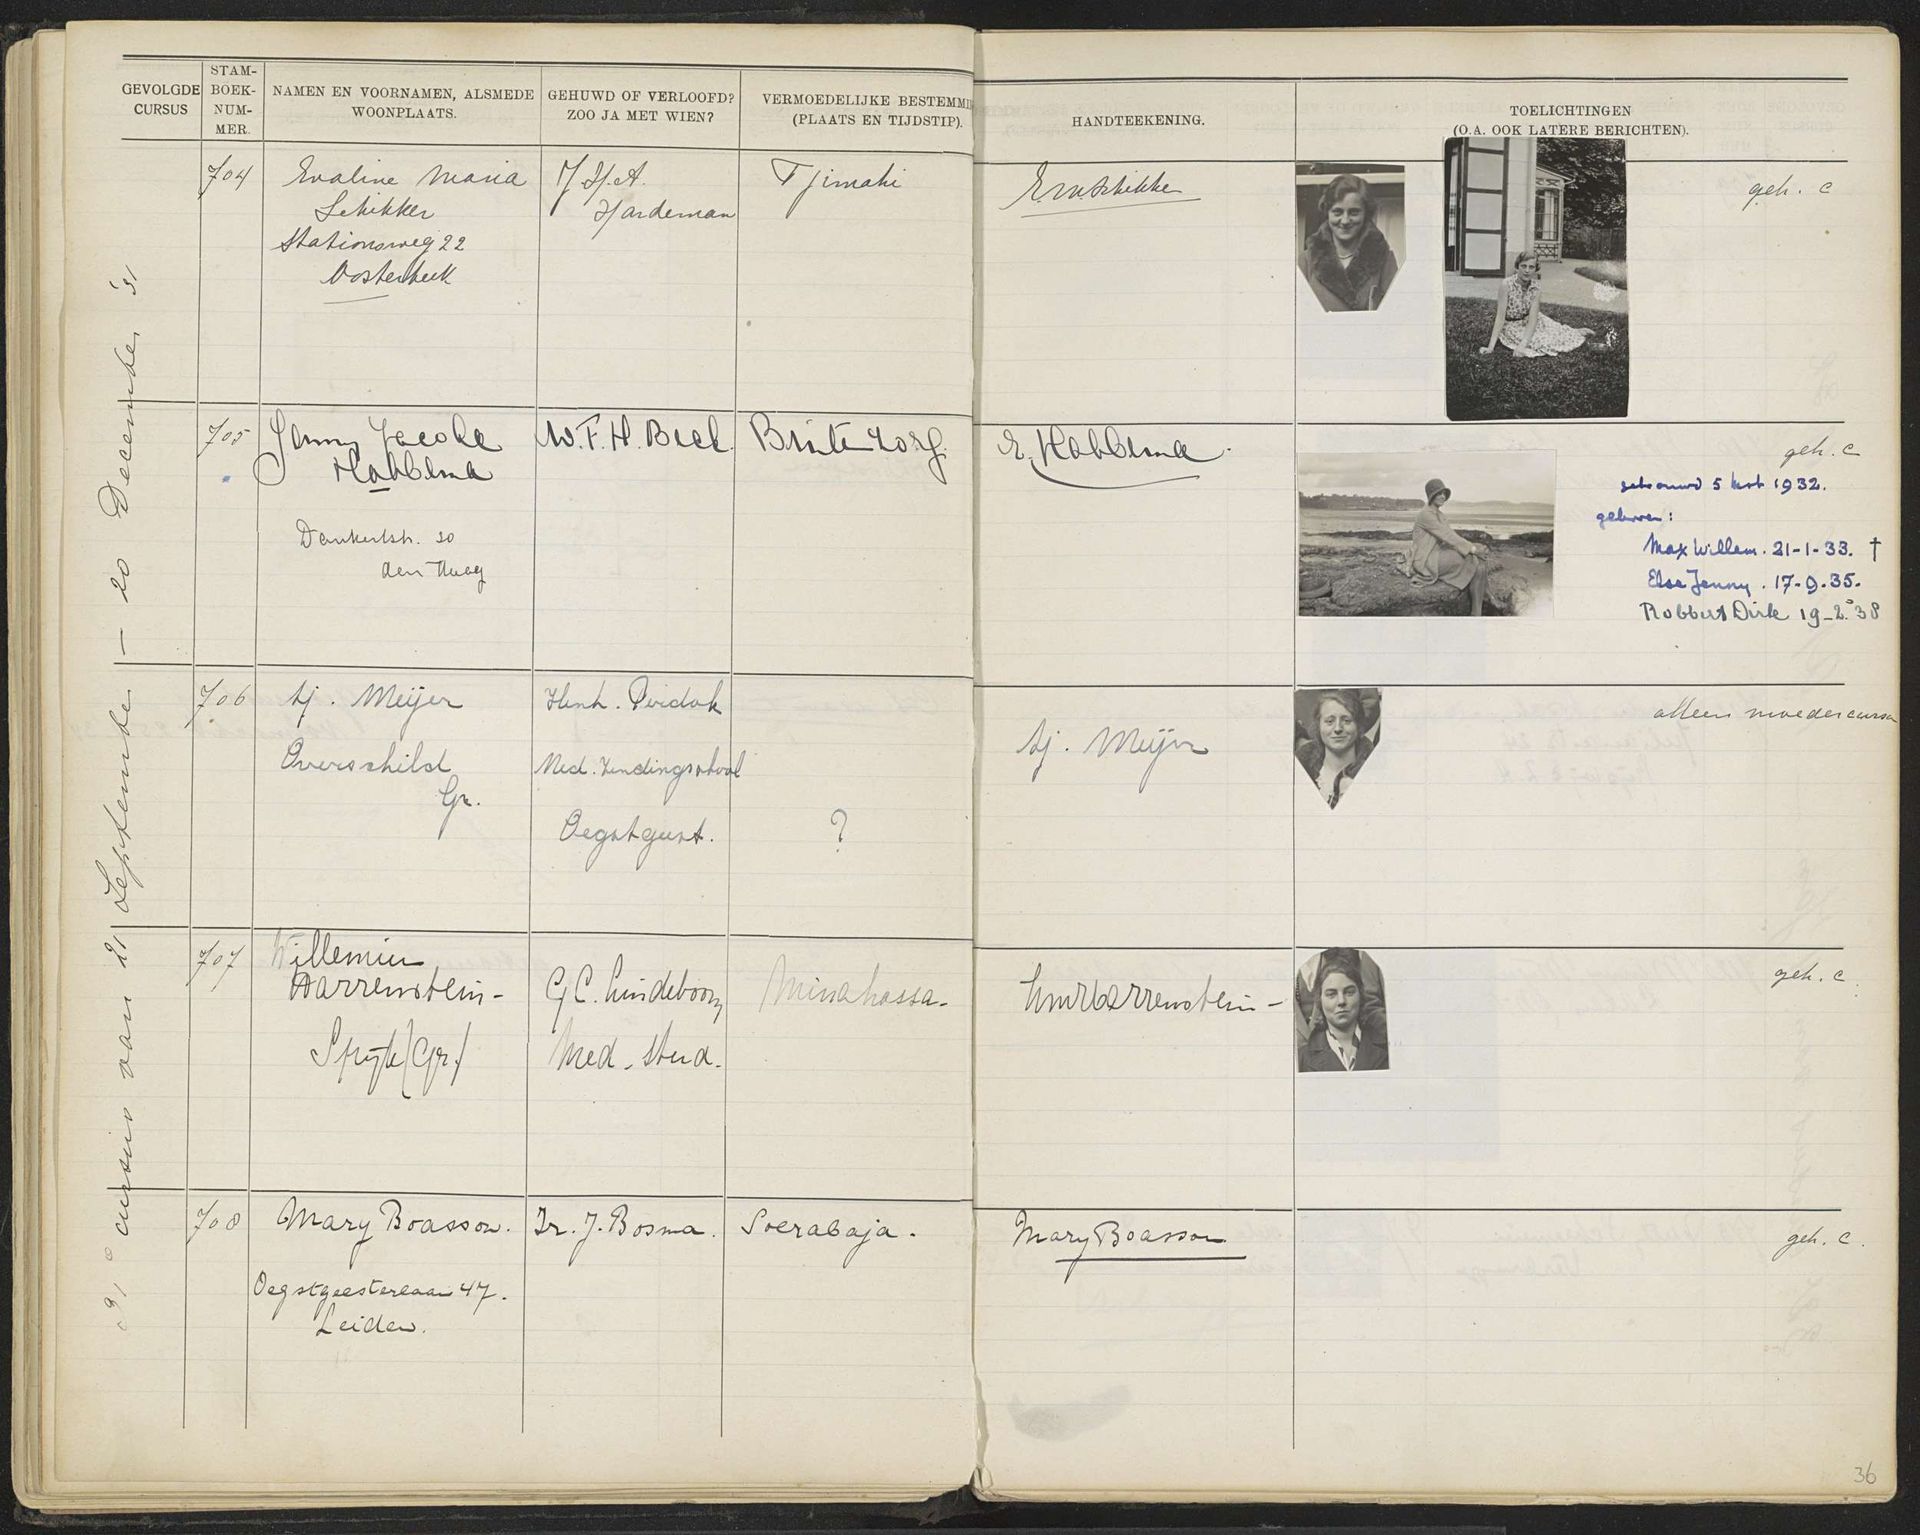 GEVOLGDE CURSUS
STAM-BOEK-NUM-MER.
NAMEN EN VOORNAMEN, ALSMEDE WOONPLAATS.
GEHUWD OF VERLOOFD? ZOO JA MET WIEN?
VERMOEDELIJKE BESTEMMI
(PLAATS EN TIJDSTIP).
HANDTEEKENING.
TOELICHTINGEN
(O.A. OOK LATERE BERICHTEN).
cursus van 21 September — 20 December '31
704
Evaline Maria
Schikker
Stationsweg 22
Oosterbeek
Hardeman
Tjimahi
E M Schikker
geh. c
705
Jenny Jacoba
Hobbema
Dankertstr. 50
den Haag
W.F.H. Beel.
Buitenzorg.
Hobbema.
geh. c
getrouwd 5 1932.
geboren:
Max Willem. 21-1-33. †
Else Jenny. 17-9-35.
Robbert Dirk 19-2-'38
706
Meijer
Overschild
Gr.
Henk.
Ned. Zendingsschool
Oegstgeest.
?
Meijer
alleen moedercursus
707
Willemien
Harrenstein-
(Gr.)
G C. Lindeboom
Med. stud.
Minahassa-
Harrenstein-
geh. c.
708
Mary Boasson.
Oegstgeesterlaan 47.
Leiden.
Ir. J. Bosma.
Soerabaja.
Mary Boasson
geh. c.
36